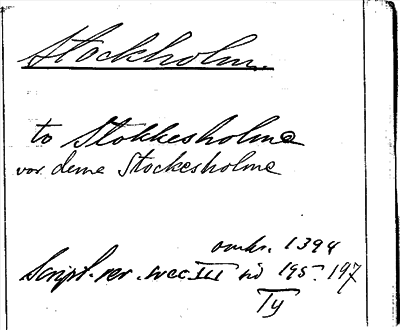 Stockholm
to Stokkesholme
vor deme Stockesholme
omkr. 1394
Script. rer. svec. III sid 195. 197
Ty